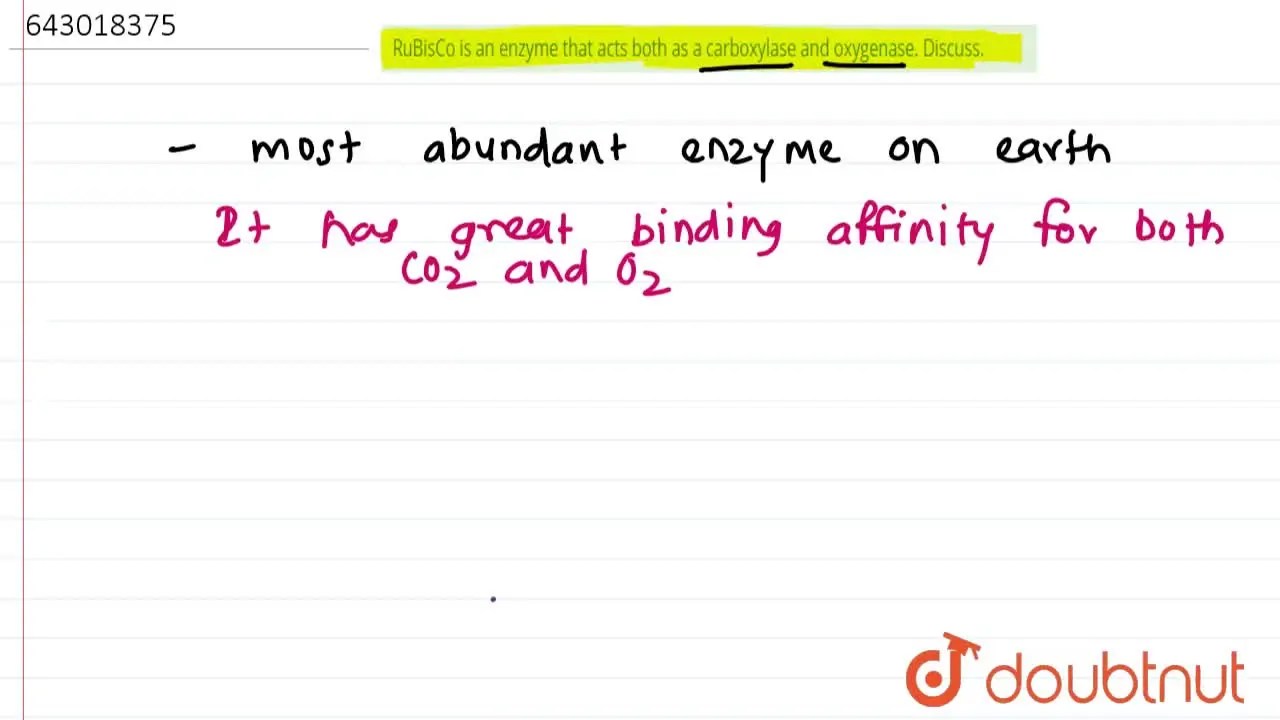 643018375
RuBisCo is an enzyme that acts both as a carboxylase and oxygenase. Discuss.
- most abundant enzyme on earth
It has great binding affinity for both
CO2 and O2
doubtnut